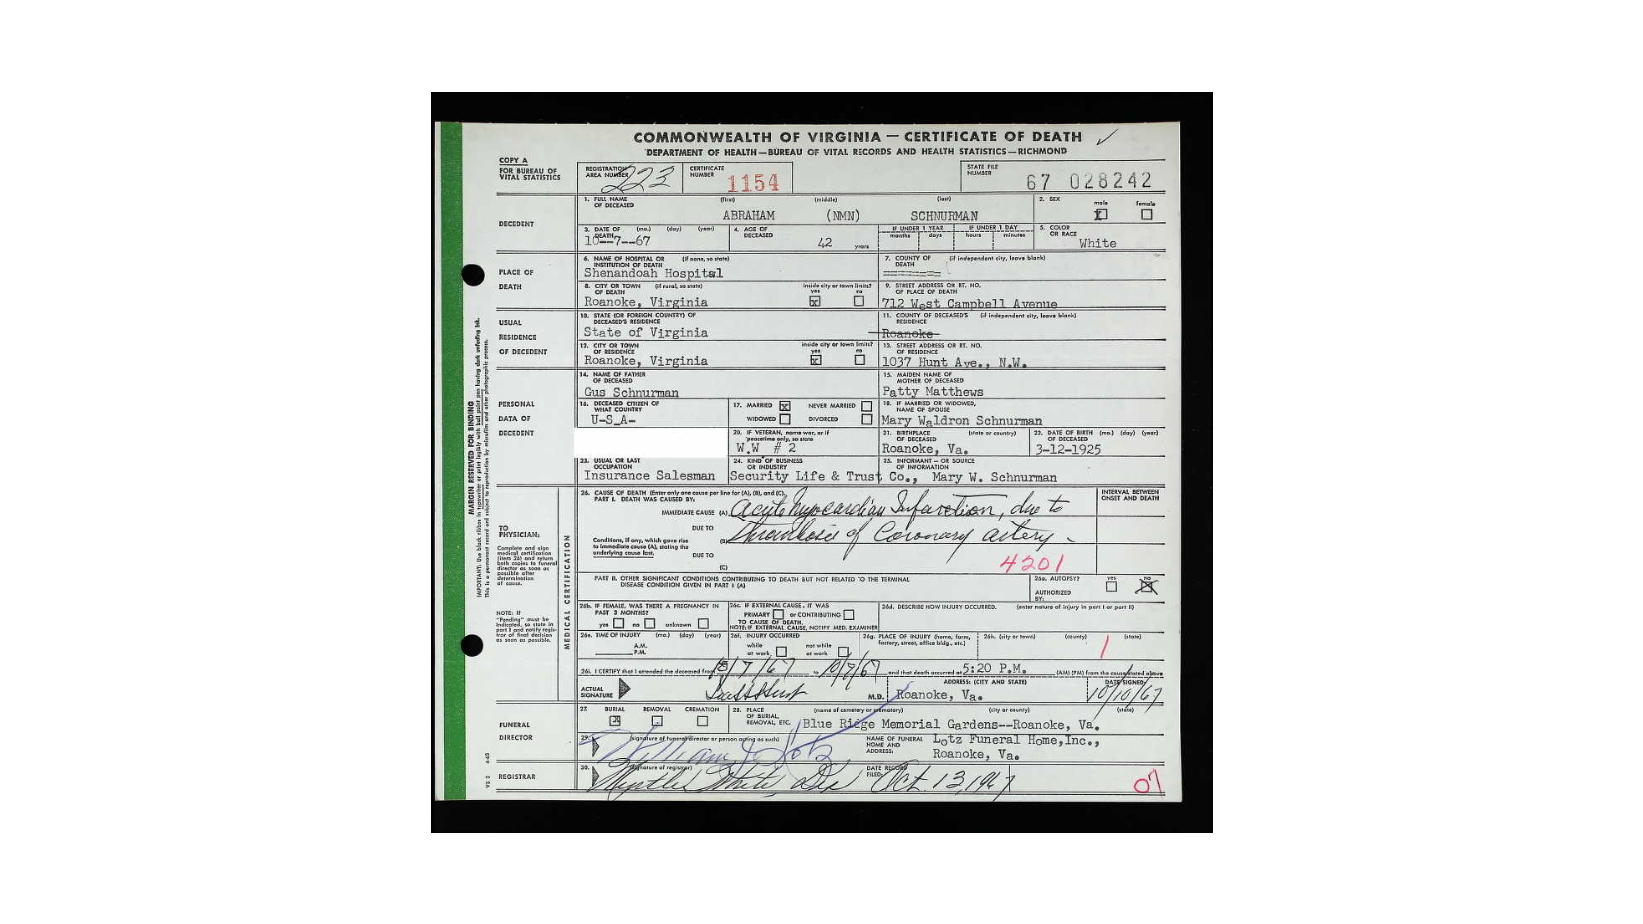 COMMONWEALTH OF VIRGINIA — CERTIFICATE OF DEATH
DEPARTMENT OF HEALTH—BUREAU OF VITAL RECORDS AND HEALTH STATISTICS—RICHMOND
COPY A
FOR BUREAU OF
VITAL STATISTICS
REGISTRATION
AREA NUMBER 223
CERTIFICATE
NUMBER 1154
STATE FILE
NUMBER 67 028242
DECEDENT
1. FULL NAME
OF DECEASED
(first) (middle) (last)
ABRAHAM (NMN) SCHNURMAN
2. SEX male female
x
3. DATE OF (mo.) (day) (year)
DEATH
10--7--67
4. AGE OF
DECEASED
42 years
IF UNDER 1 YEAR
months days
IF UNDER 1 DAY
hours minutes
5. COLOR
OR RACE
White
PLACE OF
DEATH
6. NAME OF HOSPITAL OR (if none, so state)
INSTITUTION OF DEATH
Shenandoah Hospital
7. COUNTY OF (if independent city, leave blank)
DEATH
8. CITY OR TOWN (if rural, so state)
OF DEATH
Roanoke, Virginia
inside city or town limits?
yes no
x
9. STREET ADDRESS OR RT. NO.
OF PLACE OF DEATH
712 West Campbell Avenue
USUAL
RESIDENCE
OF DECEDENT
10. STATE (OR FOREIGN COUNTRY) OF
DECEASED'S RESIDENCE
State of Virginia
11. COUNTY OF DECEASED'S (if independent city, leave blank)
RESIDENCE
Roanoke
12. CITY OR TOWN
OF RESIDENCE
Roanoke, Virginia
inside city or town limits?
yes no
x
13. STREET ADDRESS OR RT. NO.
OF RESIDENCE
1037 Hunt Ave., N.W.
PERSONAL
DATA OF
DECEDENT
14. NAME OF FATHER
OF DECEASED
Gus Schnurman
15. MAIDEN NAME OF
MOTHER OF DECEASED
Patty Matthews
16. DECEASED CITIZEN OF
WHAT COUNTRY
U-S-A-
17. MARRIED x NEVER MARRIED
WIDOWED DIVORCED
18. IF MARRIED OR WIDOWED,
NAME OF SPOUSE
Mary Waldron Schnurman
20. IF VETERAN, name war, or if
peacetime only, so state
W.W # 2
21. BIRTHPLACE (state or country)
OF DECEASED
Roanoke, Va.
22. DATE OF BIRTH (mo.) (day) (year)
OF DECEASED
3-12-1925
23. USUAL OR LAST
OCCUPATION
Insurance Salesman
24. KIND OF BUSINESS
OR INDUSTRY
Security Life & Trust Co.,
25. INFORMANT — OR SOURCE
OF INFORMATION
Mary W. Schnurman
MARGIN RESERVED FOR BINDING
TO
PHYSICIAN:
Complete and sign
medical certification
(item 26) and return
both copies to funeral
director as soon as
possible after
determination
of cause.
NOTE: IF
"Pending" must be
indicated, so state in
part I and notify regis-
trar of final decision
as soon as possible.
MEDICAL CERTIFICATION
26. CAUSE OF DEATH (Enter only one cause per line for (A), (B), and (C).
PART I. DEATH WAS CAUSED BY:
INTERVAL BETWEEN
ONSET AND DEATH
IMMEDIATE CAUSE (A) Acute Myocardian Infarction, due to
DUE TO
(B) thrombosis of Coronary artery.
Conditions, if any, which gave rise
to immediate cause (A), stating the
underlying cause last.
DUE TO
(C)
4201
PART II. OTHER SIGNIFICANT CONDITIONS CONTRIBUTING TO DEATH BUT NOT RELATED TO THE TERMINAL
DISEASE CONDITION GIVEN IN PART I (A)
26a. AUTOPSY? yes no
AUTHORIZED
BY:
26b. IF FEMALE, WAS THERE A PREGNANCY IN
PAST 3 MONTHS?
yes no unknown
26c. IF EXTERNAL CAUSE, IT WAS
PRIMARY or CONTRIBUTING
TO CAUSE OF DEATH.
NOTE: IF EXTERNAL CAUSE, NOTIFY MED. EXAMINER
26d. DESCRIBE HOW INJURY OCCURRED. (enter nature of injury in part I or part II)
26e. TIME OF INJURY (mo.) (day) (year)
A.M.
P.M.
26f. INJURY OCCURRED
while at work not while at work
26g. PLACE OF INJURY (home, farm,
factory, street, office bldg., etc.)
26h. (city or town) (county) (state)
1
26i. I CERTIFY that I attended the deceased from /7/67 to 10/7/67 and that death occurred at 5:20 P.M. (AM) (PM) from the cause stated above
ACTUAL
SIGNATURE
M.D.
ADDRESS: (CITY AND STATE)
Roanoke, Va.
DATE SIGNED:
10/10/67
FUNERAL
DIRECTOR
27. BURIAL REMOVAL CREMATION
x
28. PLACE (name of cemetery or crematory) (city or county) (state)
OF BURIAL,
REMOVAL, ETC.
Blue Ridge Memorial Gardens--Roanoke, Va.
29. (signature of funeral director or person acting as such)
William Lotz
NAME OF FUNERAL
HOME AND
ADDRESS:
Lotz Funeral Home,Inc.,
Roanoke, Va.
REGISTRAR
30. (signature of registrar)
Myrtle White Dep
DATE RECORD
FILED:
Oct. 13, 1967
07